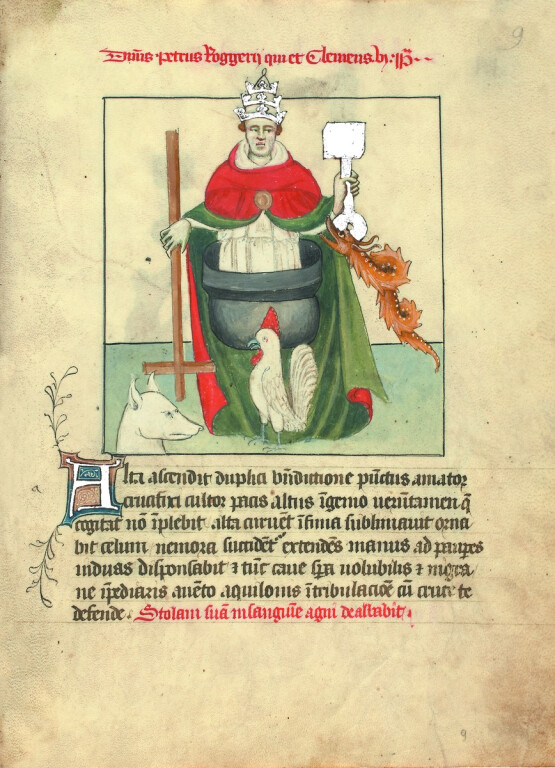 9
Dn̄us petrus Roggerij qui et Clemens
Alta ascendit duplici bn̄dictione pūctus amator
crucifixi cultor pacis altus īgenio verūtamen q̄
cogitat nō īplebit alta circuēt īfima sublimauit orna
bit celum nemora succidet extendēs manus ad paupes
induas dispensabit ⁊ tūc caue volubilis ⁊ nigra
ne īpediaris auēto aquilonis ītribulacōe cū cruce te
defende. Stolam suā ī sanguīe agni dealbabit.
9